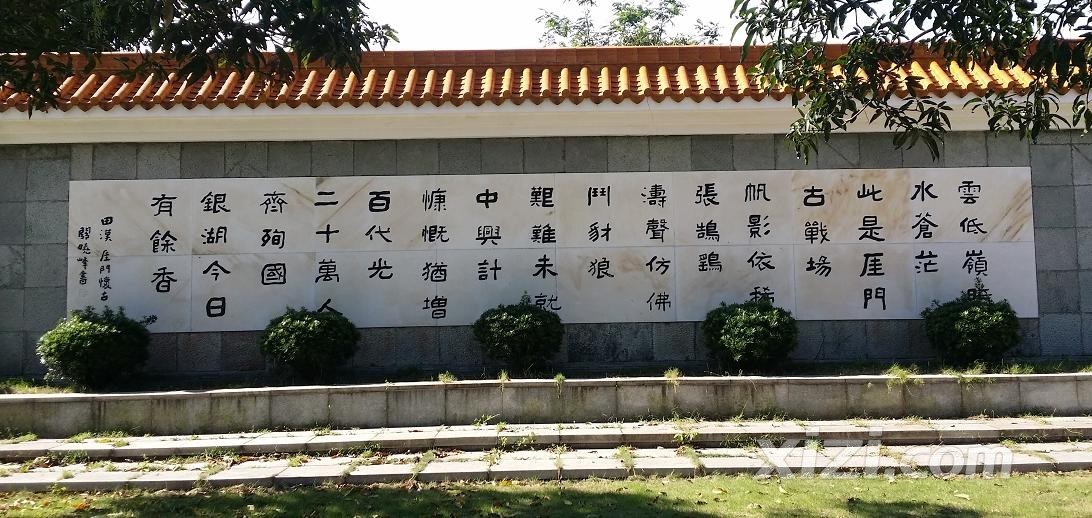 雲低嶺暗
水蒼茫
此是厓門
古戰場
帆影依稀
張鵠鷁
濤聲仿佛
鬥豺狼
艱難未就
中興計
慷慨猶增
百代光
二十萬人
齊殉國
銀湖今日
有餘香
田漢 厓門懷古
關曉峰書
xizi.com